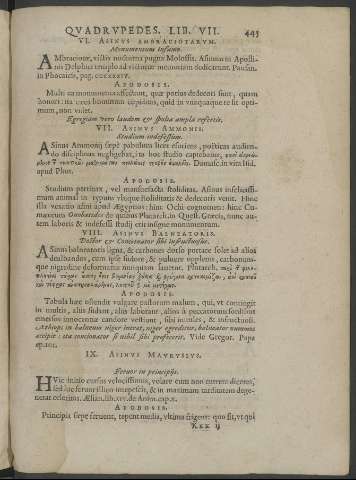 QVADRVPEDES. LIB. VII. 445
VI. ASINVS AMBRACIOTARVM.
Monumentum infame.
AMbraciotæ, victis nocturna pugna Molossis, Asinum in Apolli-
nis Delphici templo ad victoriæ monumentum dedicarunt. Pausan.
in Phocaicis, pag. CCCXXXIV.
APODOSIS.
Multi ea monumenta affectant, quæ potius dedecori sunt, quam
honori: ita cæci hominum cupidine, quid in vnaquaque re sit opti-
mum, non vident.
Egregiam vero laudem & spolia ampla refertis.
VII. ASINVS AMMONIS.
Studium indefessum.
ASinus Ammonij sæpè pabulum licet esuriens, poëticas audien-
do disciplinas negligebat, ita hoc studio captebatur,
Damasc. in vita Isid.
apud Phot.
APODOSIS.
Studium pertinax, vel mansuefacta stoliditas. Asinus insulsissi-
mum animal in typum vsque stoliditatis & dedecoris venit. Hinc
illa vecordis asini apud Ægyptios: hinc Ochi cognomen: hinc Cu-
manorum de quibus Plutarch. in Quæst. Græcis, nunc au-
tem laboris & indefessi studij est insigne monumentum.
VIII. ASINVS BALNEATORIS.
Doctor & Concionator sibi infructuosus.
ASinus balneatoris ligna, & carbones dorso portare solet ad alios
dealbandos, cum ipse sudore, & puluere oppletus, carbonum-
que nigredine deformatus nunquam lauetur. Plutarch.
APODOSIS.
Tabula hæc ostendit vulgare pastorum malum, qui, vt contingit
in multis, alijs sudant, alijs laborant, alios à peccatorum sorditie
emersos innocentiæ candore vestiunt, sibi inutiles, & infructuosi.
Æthiops in balneum niger intrat, niger egreditur, balneator nummos
accipit: ita concionator si nihil sibi profecerit. Vide Gregor. Papa
IX. ASINVS MAVRVSIVS.
Feruor in principijs.
HVic initio cursus velocissimus, volare eum non currere diceres,
sed ilic feruor illico intepescit, & in maximam tarditatem dege-
nerat celerimè. Ælian. lib. XIV. de Anim. cap. X.
APODOSIS.
Principia sæpe feruent, tepent media, vltima frigent: quo fit, vt qui
Kkk ij